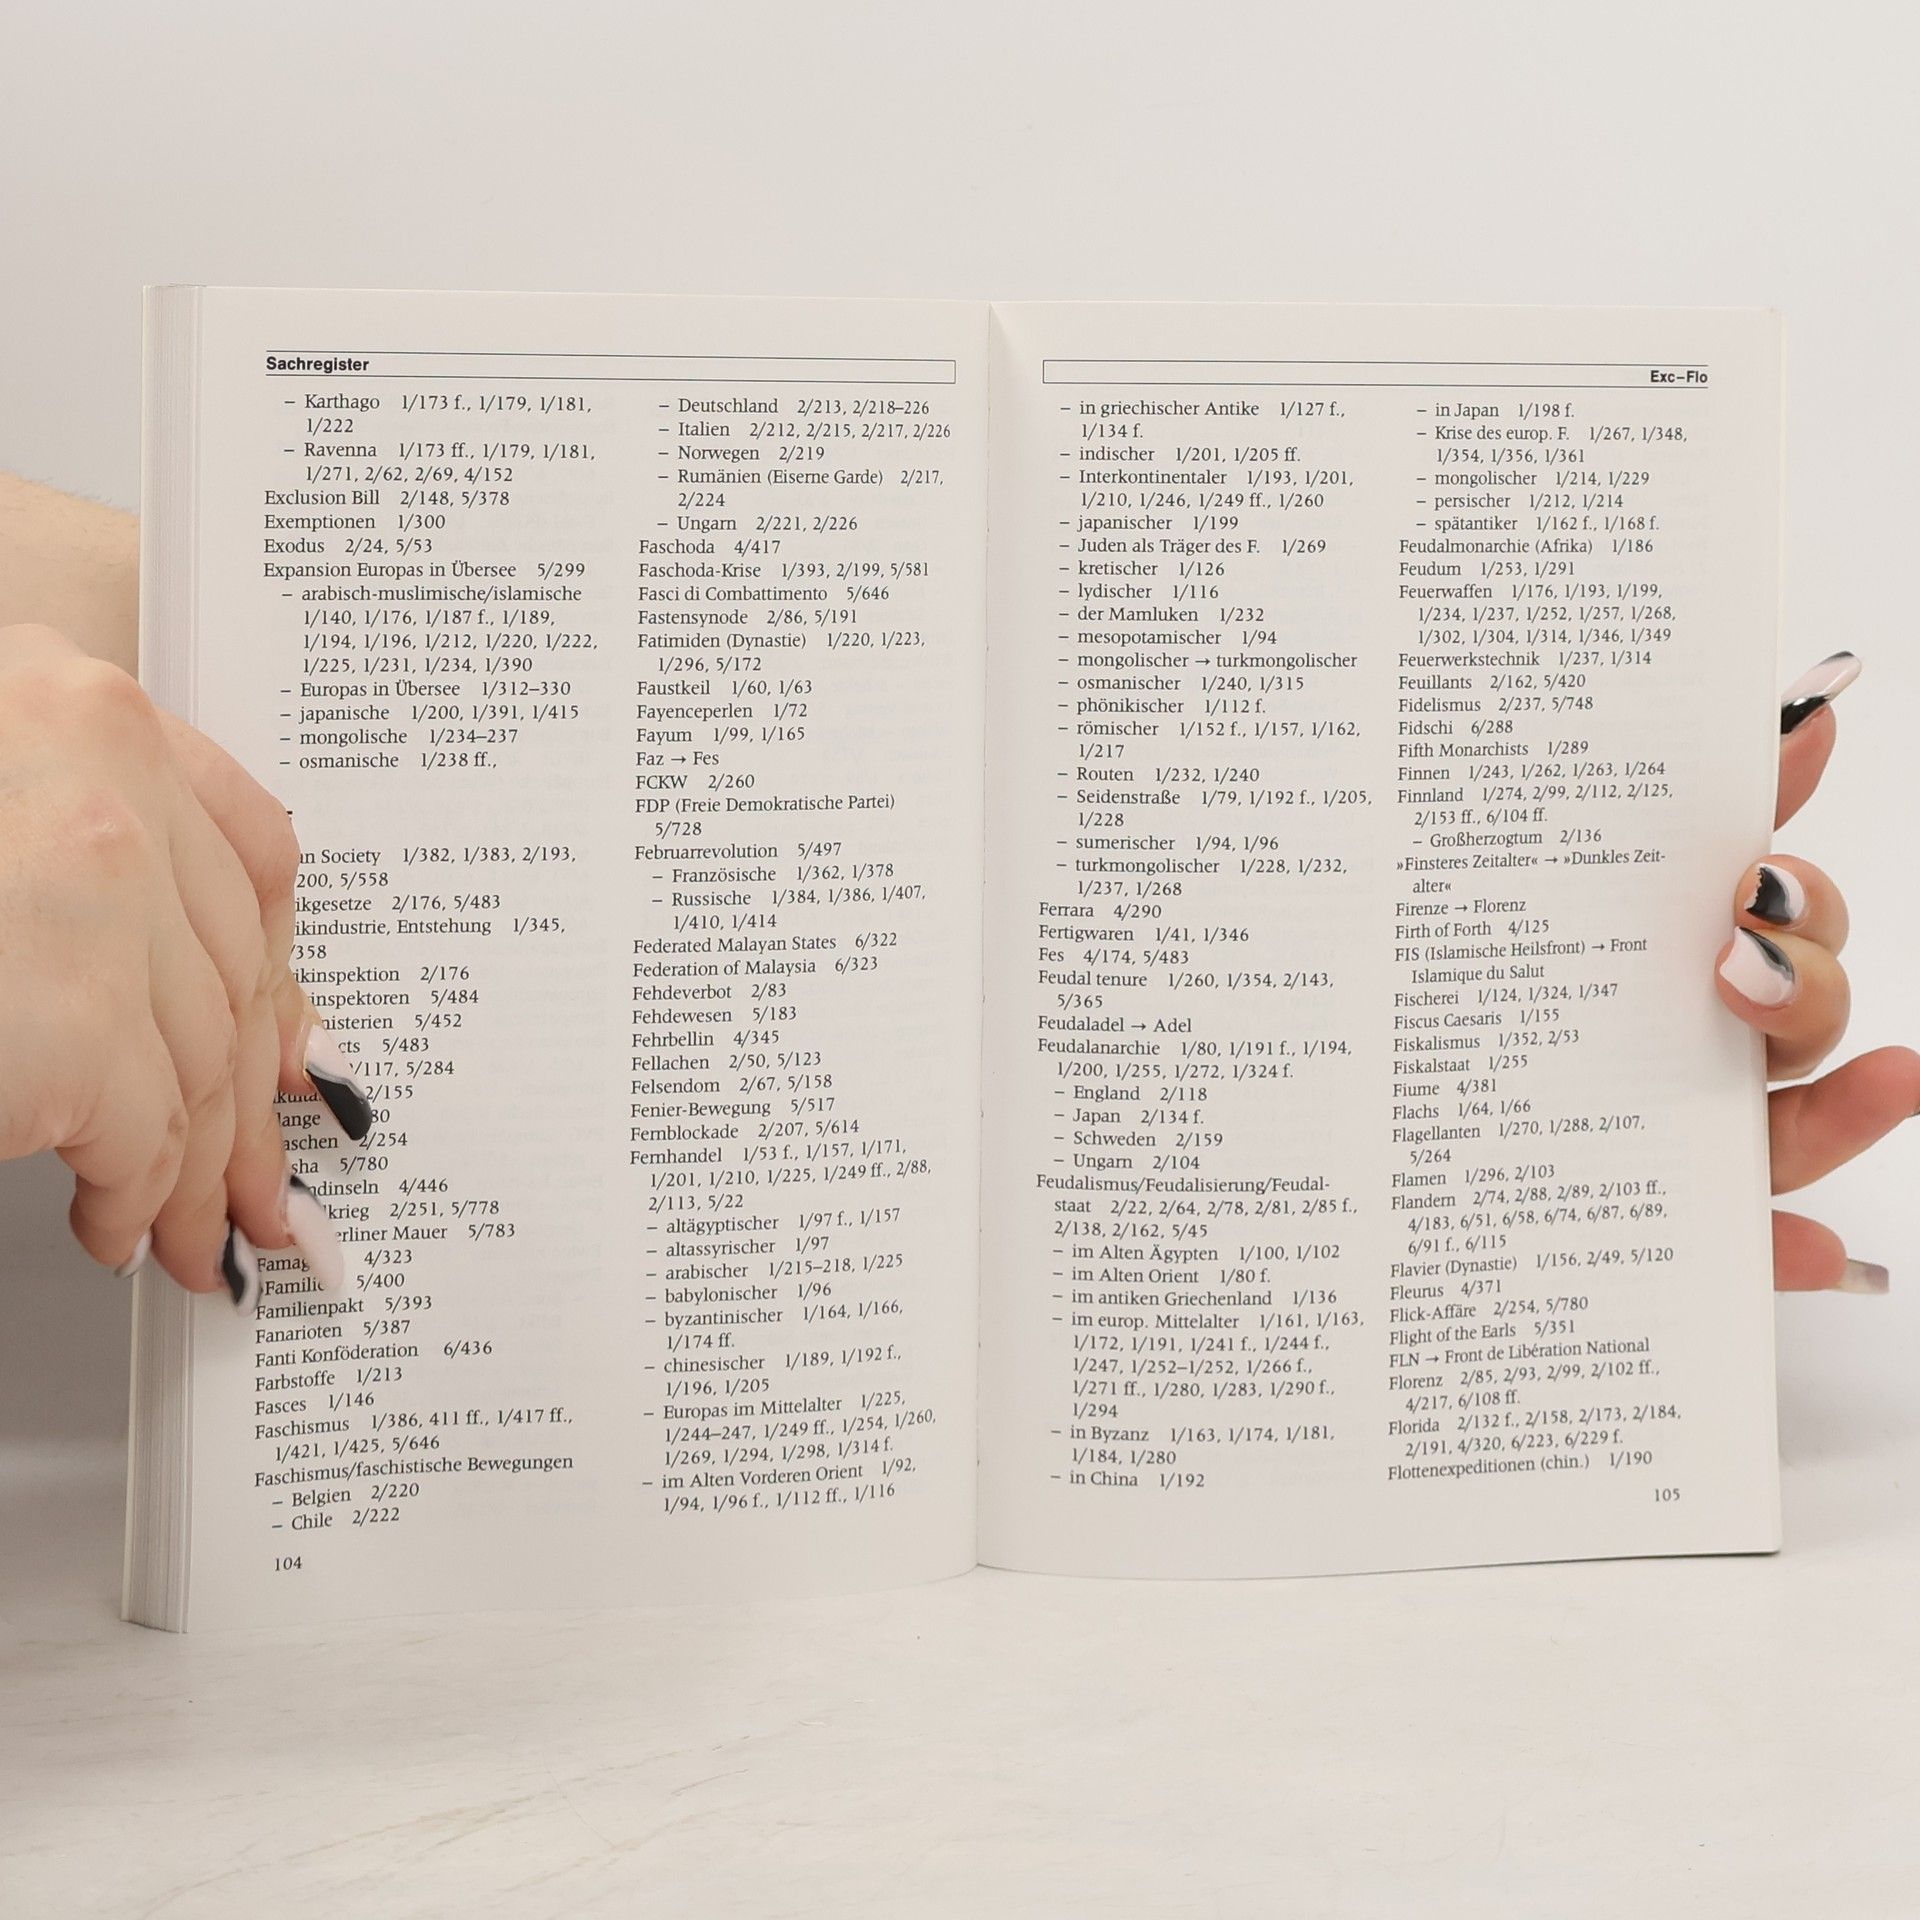 Sachregister
– Karthago 1/173 f., 1/179, 1/181,
1/222
– Ravenna 1/173 ff., 1/179, 1/181,
1/271, 2/62, 2/69, 4/152
Exclusion Bill 2/148, 5/378
Exemptionen 1/300
Exodus 2/24, 5/53
Expansion Europas in Übersee 5/299
– arabisch-muslimische/islamische
1/140, 1/176, 1/187 f., 1/189,
1/194, 1/196, 1/212, 1/220, 1/222,
1/225, 1/231, 1/234, 1/390
– Europas in Übersee 1/312–330
– japanische 1/200, 1/391, 1/415
– mongolische 1/234–237
– osmanische 1/238 ff.,
Society 1/382, 1/383, 2/193,
200, 5/558
2/176, 5/483
Entstehung 1/345,
/358
2/176
5/484
5/452
5/483
/117, 5/284
2/155
80
2/254
5/780
4/446
2/251, 5/778
Mauer 5/783
4/323
5/400
Familienpakt 5/393
Fanarioten 5/387
Fanti Konföderation 6/436
Farbstoffe 1/213
Fasces 1/146
Faschismus 1/386, 411 ff., 1/417 ff.,
1/421, 1/425, 5/646
Faschismus/faschistische Bewegungen
– Belgien 2/220
– Chile 2/222
104
– Deutschland 2/213, 2/218–226
– Italien 2/212, 2/215, 2/217, 2/226
– Norwegen 2/219
– Rumänien (Eiserne Garde) 2/217,
2/224
– Ungarn 2/221, 2/226
Faschoda 4/417
Faschoda-Krise 1/393, 2/199, 5/581
Fasci di Combattimento 5/646
Fastensynode 2/86, 5/191
Fatimiden (Dynastie) 1/220, 1/223,
1/296, 5/172
Faustkeil 1/60, 1/63
Fayenceperlen 1/72
Fayum 1/99, 1/165
Faz → Fes
FCKW 2/260
FDP (Freie Demokratische Partei)
5/728
Februarrevolution 5/497
– Französische 1/362, 1/378
– Russische 1/384, 1/386, 1/407,
1/410, 1/414
Federated Malayan States 6/322
Federation of Malaysia 6/323
Fehdeverbot 2/83
Fehdewesen 5/183
Fehrbellin 4/345
Fellachen 2/50, 5/123
Felsendom 2/67, 5/158
Fenier-Bewegung 5/517
Fernblockade 2/207, 5/614
Fernhandel 1/53 f., 1/157, 1/171,
1/201, 1/210, 1/225, 1/249 ff., 2/88,
2/113, 5/22
– altägyptischer 1/97 f., 1/157
– altassyrischer 1/97
– arabischer 1/215–218, 1/225
– babylonischer 1/96
– byzantinischer 1/164, 1/166,
1/174 ff.
– chinesischer 1/189, 1/192 f.,
1/196, 1/205
– Europas im Mittelalter 1/225,
1/244–247, 1/249 ff., 1/254, 1/260,
1/269, 1/294, 1/298, 1/314 f.
– im Alten Vorderen Orient 1/92,
1/94, 1/96 f., 1/112 ff., 1/116
Exc–Flo
– in griechischer Antike 1/127 f.,
1/134 f.
– indischer 1/201, 1/205 ff.
– Interkontinentaler 1/193, 1/201,
1/210, 1/246, 1/249 ff., 1/260
– japanischer 1/199
– Juden als Träger des F. 1/269
– kretischer 1/126
– lydischer 1/116
– der Mamluken 1/232
– mesopotamischer 1/94
– mongolischer → turkmongolischer
– osmanischer 1/240, 1/315
– phönikischer 1/112 f.
– römischer 1/152 f., 1/157, 1/162,
1/217
– Routen 1/232, 1/240
– Seidenstraße 1/79, 1/192 f., 1/205,
1/228
– sumerischer 1/94, 1/96
– turkmongolischer 1/228, 1/232,
1/237, 1/268
Ferrara 4/290
Fertigwaren 1/41, 1/346
Fes 4/174, 5/483
Feudal tenure 1/260, 1/354, 2/143,
5/365
Feudaladel → Adel
Feudalanarchie 1/80, 1/191 f., 1/194,
1/200, 1/255, 1/272, 1/324 f.
– England 2/118
– Japan 2/134 f.
– Schweden 2/159
– Ungarn 2/104
Feudalismus/Feudalisierung/Feudal-
staat 2/22, 2/64, 2/78, 2/81, 2/85 f.,
2/138, 2/162, 5/45
– im Alten Ägypten 1/100, 1/102
– im Alten Orient 1/80 f.
– im antiken Griechenland 1/136
– im europ. Mittelalter 1/161, 1/163,
1/172, 1/191, 1/241 f., 1/244 f.,
1/247, 1/252–1/252, 1/266 f.,
1/271 ff., 1/280, 1/283, 1/290 f.,
1/294
– in Byzanz 1/163, 1/174, 1/181,
1/184, 1/280
– in China 1/192
– in Japan 1/198 f.
– Krise des europ. F. 1/267, 1/348,
1/354, 1/356, 1/361
– mongolischer 1/214, 1/229
– persischer 1/212, 1/214
– spätantiker 1/162 f., 1/168 f.
Feudalmonarchie (Afrika) 1/186
Feudum 1/253, 1/291
Feuerwaffen 1/176, 1/193, 1/199,
1/234, 1/237, 1/252, 1/257, 1/268,
1/302, 1/304, 1/314, 1/346, 1/349
Feuerwerkstechnik 1/237, 1/314
Feuillants 2/162, 5/420
Fidelismus 2/237, 5/748
Fidschi 6/288
Fifth Monarchists 1/289
Finnen 1/243, 1/262, 1/263, 1/264
Finnland 1/274, 2/99, 2/112, 2/125,
2/153 ff., 6/104 ff.
– Großherzogtum 2/136
»Finsteres Zeitalter« → »Dunkles Zeit-
alter«
Firenze → Florenz
Firth of Forth 4/125
FIS (Islamische Heilsfront) → Front
Islamique du Salut
Fischerei 1/124, 1/324, 1/347
Fiscus Caesaris 1/155
Fiskalismus 1/352, 2/53
Fiskalstaat 1/255
Fiume 4/381
Flachs 1/64, 1/66
Flagellanten 1/270, 1/288, 2/107,
5/264
Flamen 1/296, 2/103
Flandern 2/74, 2/88, 2/89, 2/103 ff.,
4/183, 6/51, 6/58, 6/74, 6/87, 6/89,
6/91 f., 6/115
Flavier (Dynastie) 1/156, 2/49, 5/120
Fleurus 4/371
Flick-Affäre 2/254, 5/780
Flight of the Earls 5/351
FLN → Front de Libération National
Florenz 2/85, 2/93, 2/99, 2/102 ff.,
4/217, 6/108 ff.
Florida 2/132 f., 2/158, 2/173, 2/184,
2/191, 4/320, 6/223, 6/229 f.
Flottenexpeditionen (chin.) 1/190
105